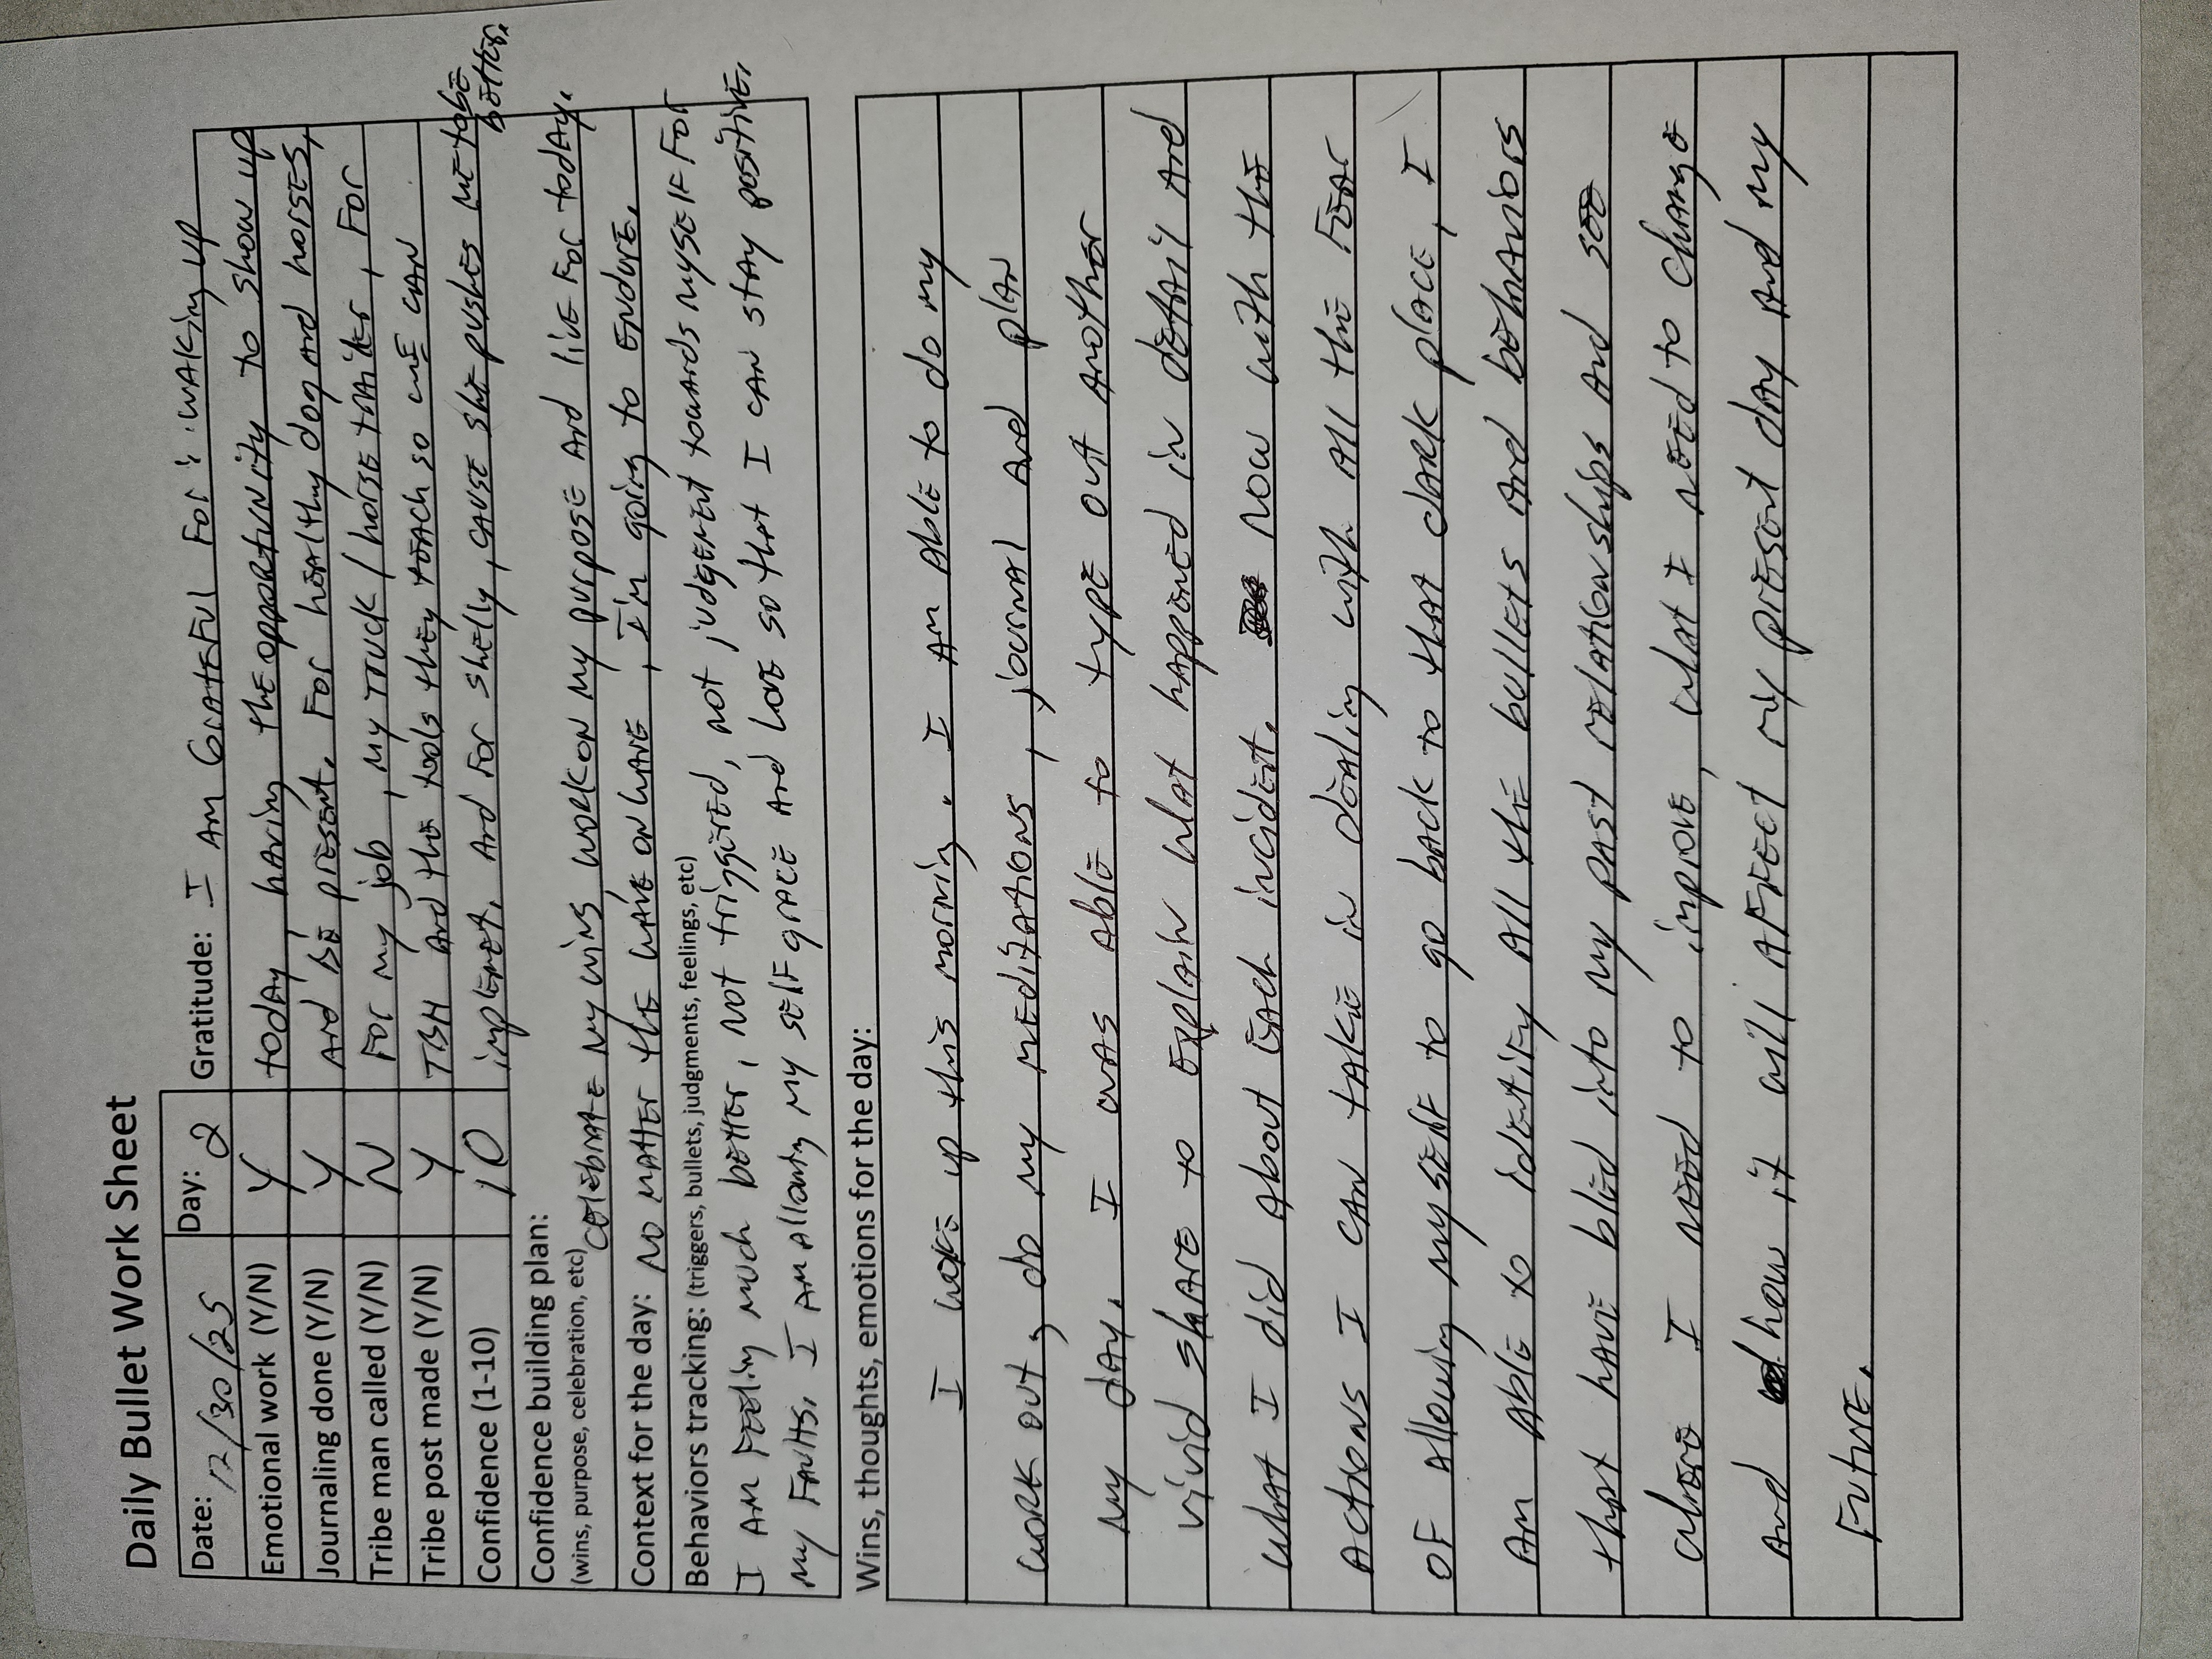 Daily Bullet Work Sheet
Date: 12/30/25 Day: 2
Emotional work (Y/N) Y
Journaling done (Y/N) Y
Tribe man called (Y/N) N
Tribe post made (Y/N) Y
Confidence (1-10) 10
Gratitude: I Am Grateful For : waking up
today having the opportunity to show up
And be present. For healthy dog and horses,
For my job, my truck / horse trailer, For
TBH and the tools they teach so we can
implement. And For Shelly, cause she pushes me to be
better.
Confidence building plan:
(wins, purpose, celebration, etc) celebrate my wins work on my purpose And live For today.
Context for the day: No matter the wave on wave, I'm going to Endure.
Behaviors tracking: (triggers, bullets, judgments, feelings, etc)
I am Feeling much better, not triggered, not judgement toards myself For
my Faults. I am allowing my self grace And Love so that I can stay positive.
Wins, thoughts, emotions for the day:
I woke up this morning. I Am Able to do my
work out, do my meditations, journal And plan
my day. I was Able to type out Another
vivid share to Explain what happened in detail And
what I did About Each incident. now with the
Actions I can take in dealing with All the Fear
of Allowing myself to go back to that dark place, I
Am Able to identify All the bullets and behaviors
that have bled into my past relationships And see
where I need to improve, what I need to change
And how it will Affect my present day And my
Future.